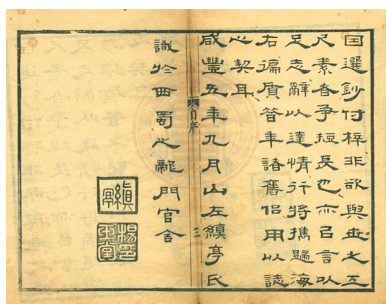 因選鈔付梓非欲與世之工
尺素者爭短長也亦曰言以
足志辭以達情行將攜歸海
右徧質管年諸舊侶用以誌
心契耳
咸豐五年九月山左縝亭氏
識於西蜀之龍門官舍
自序
三
縝亭